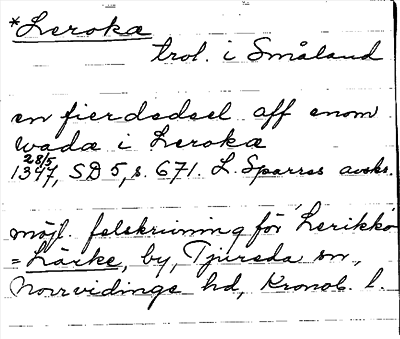 *Leroka
trol. i Småland
en fierdedeel aff enom
wada i Leroka
28/5
1347, SD 5, s. 671. L. Sparres avskr.
möjl. felskrivning för Lerikko
= Lärke, by, Tjureda sn,
Norrvidinge hd, Kronob. l.